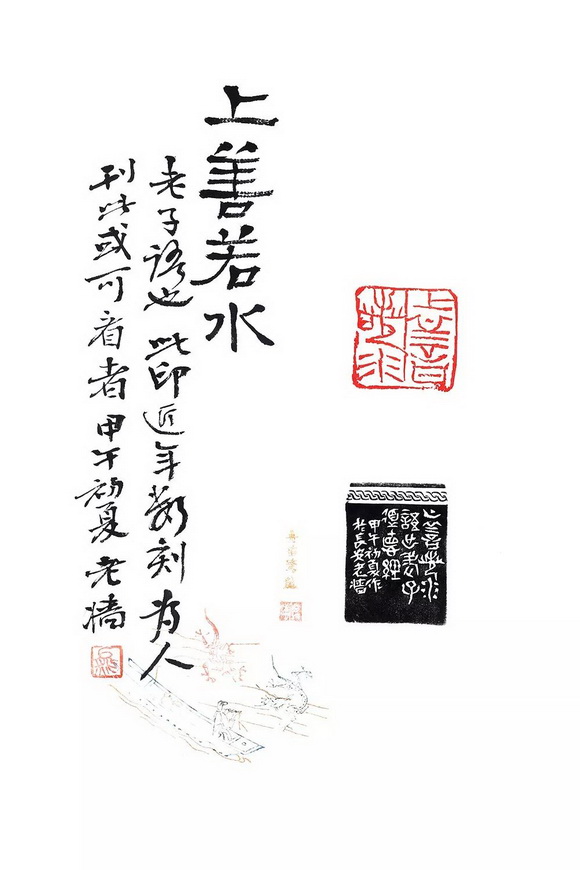 上善若水
老子語也此印近年數刻為人
刊此或可看者甲午初夏老牆
上善若水
上善若水
語出老子
道悳經
甲午初夏作
於長安老牆